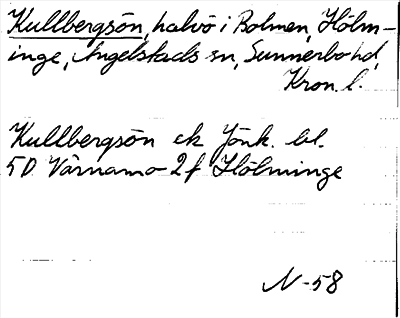 Kullbergsön, halvö i Bolmen, Hölm-
inge, Angelstads sn, Sunnerbo hd,
Kron. l.
Kullbergsön ek Jönk. bl.
5D Värnamo 2f Hölminge
N-58